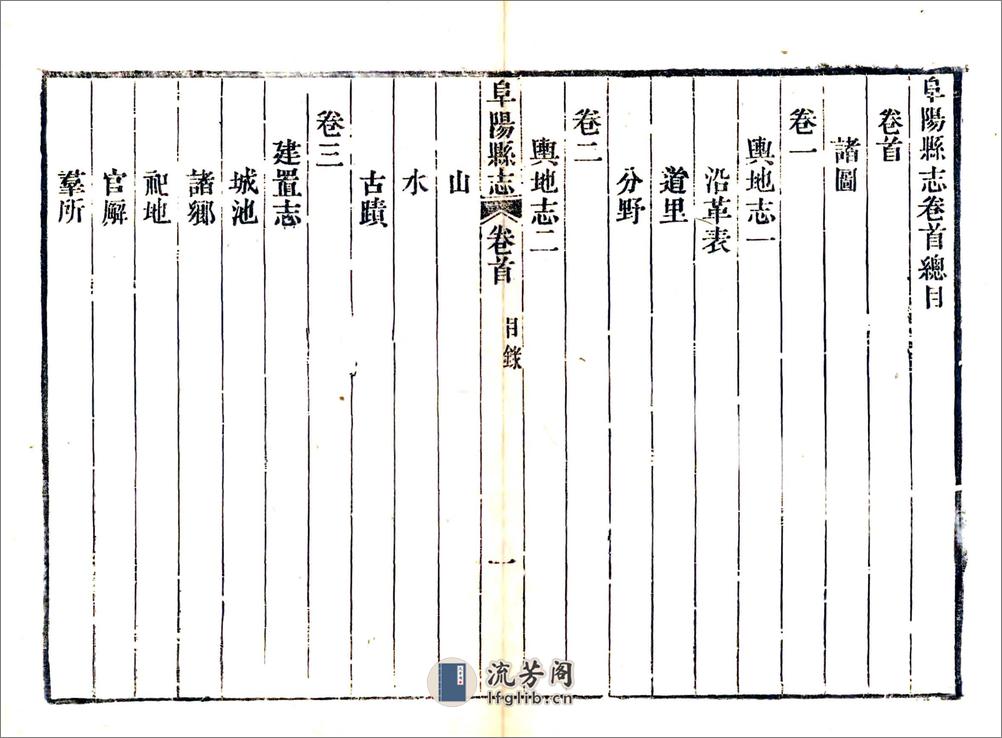 阜陽縣志卷首總目
卷首
諸圖
卷一
輿地志一
沿革表
道里
分野
卷二
輿地志二
阜陽縣志 卷首 目錄 一
山
水
古蹟
卷三
建置志
城池
諸鄉
祀地
官廨
羣所
流芳阁
lfglib.cn